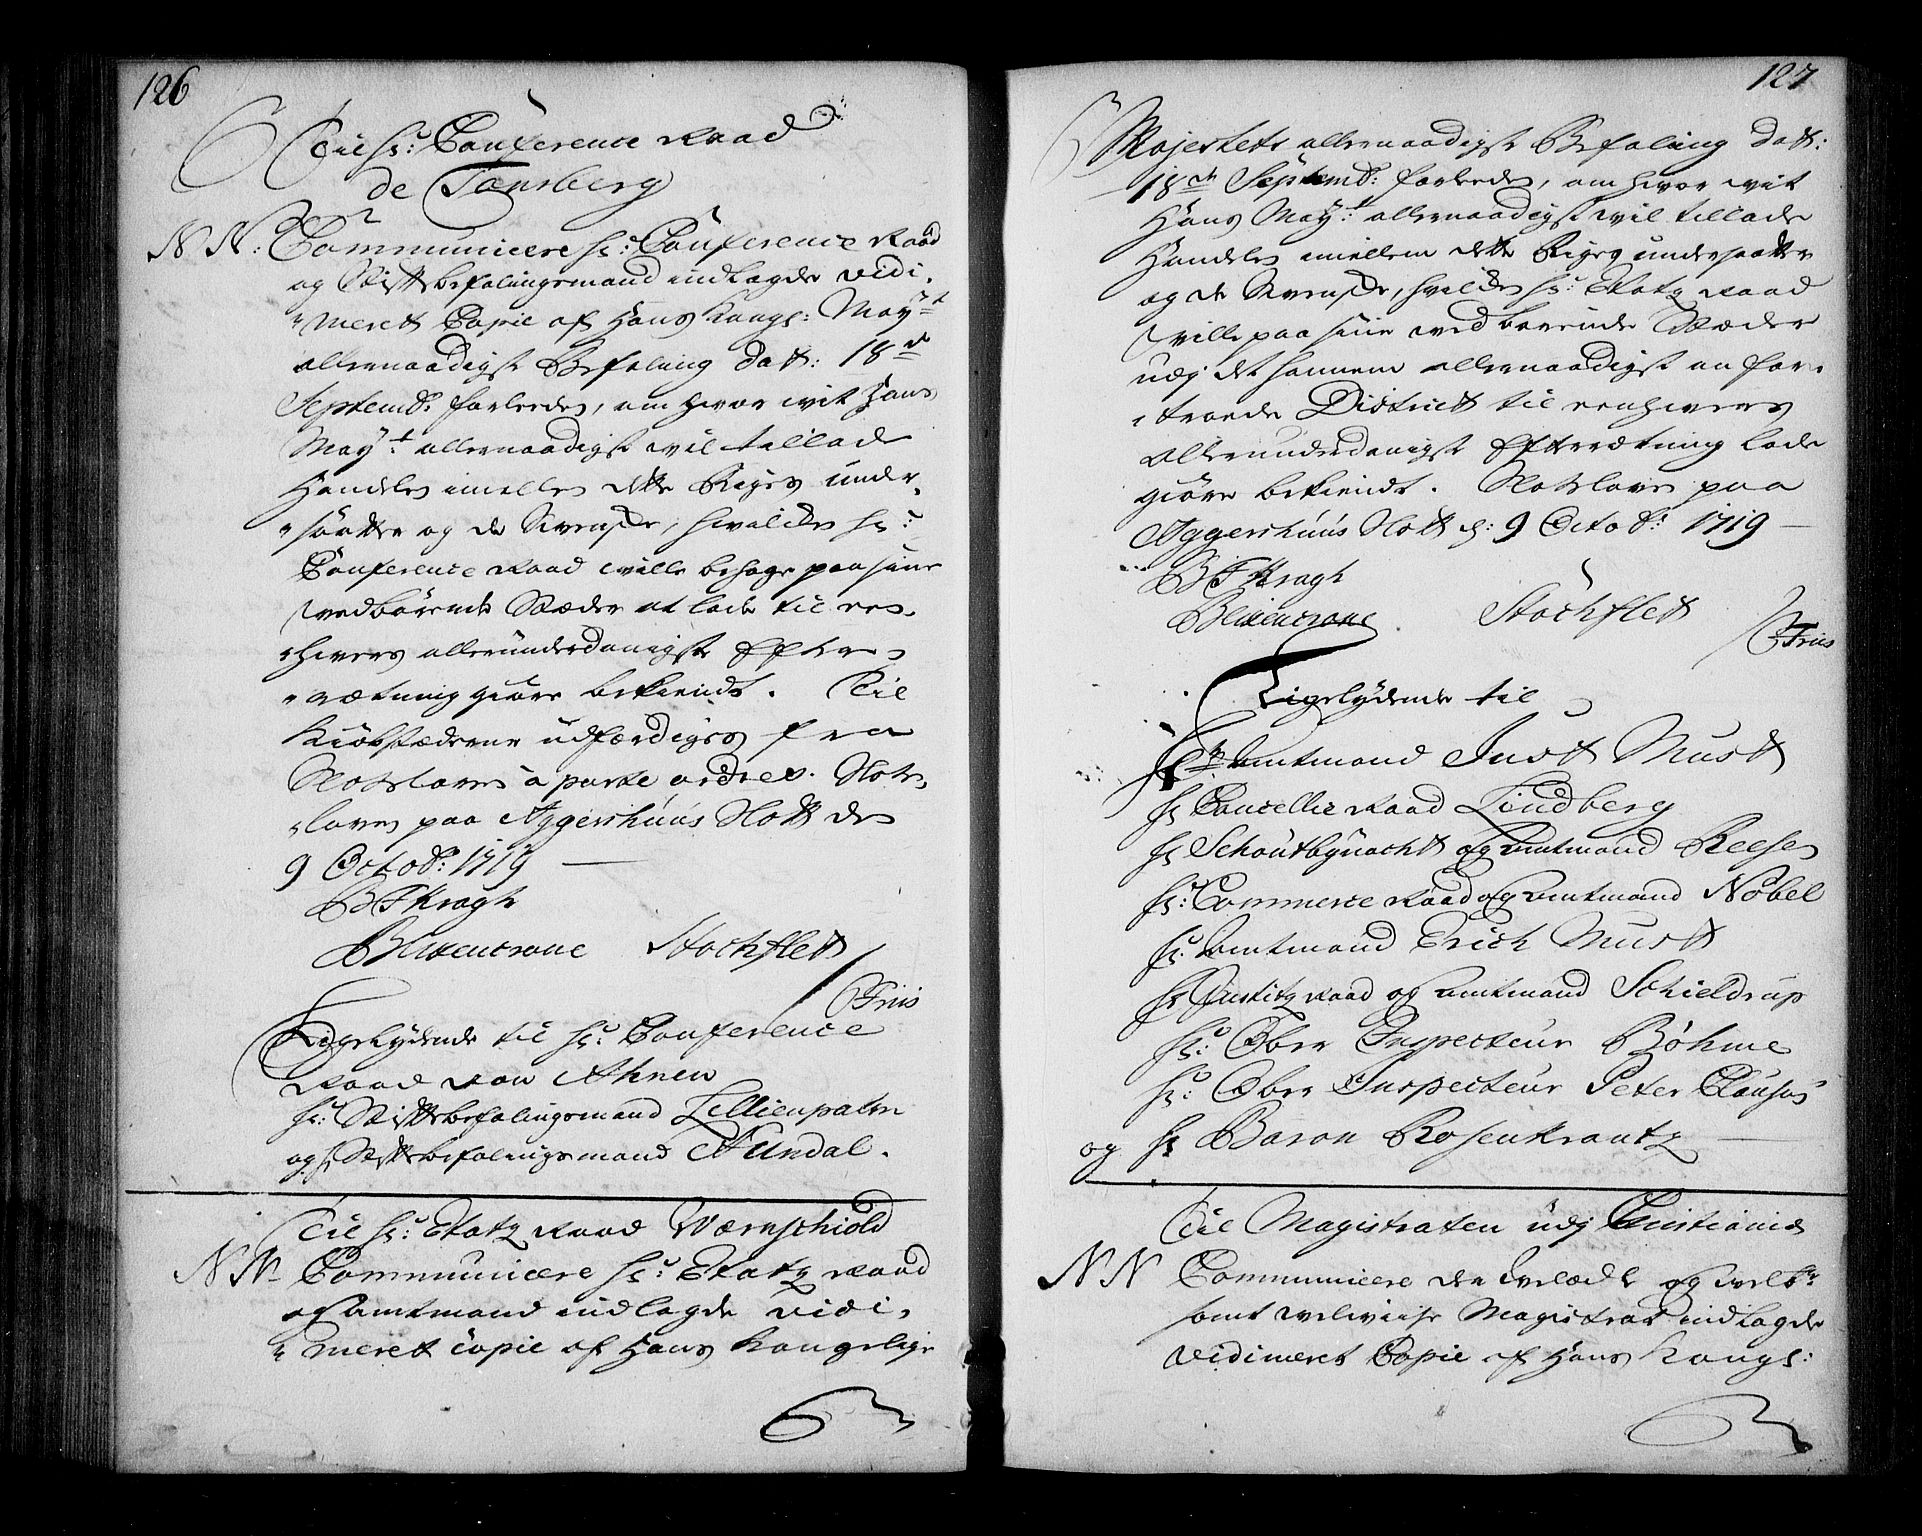 126
Til hr: Conference Raad
de Tonsberg
NN: Communicere hr: Conference Raad
og Stiftsbefalingsmand indlagde vidi-
"meret Copie af Hans Kongl: May:t
allernaadigst Befaling dat: 18de
Septemb: forleden, om hvor vit Hans
May:t allernaadigst vil tillade
Handelen imellem dette Riges under-
"saatter og de Svenske, hvilket hr:
Conference Raad wille behage paa sine
vedbørende Stæder at lade til een-
"hvers allerunderdanigste Efter-
"rætning giøre bekiendt. Til
Kiøbstæderne udfærdiges fra
Slotsloven à parte ordres. Slots-
"loven paa Aggershuus Slott den
9 Octob: 1719
BTKragh
Blixencrone Stochflett
/CFriis
Ligelydende til hr: Conference
Raad von Ahnen
hr: Stiftsbefalingsmand Lillienpalm
og hr Stiftsbefalingsmand Undal.
Til hr: Etatz Raad Wærnschiold
NN- Communicere hr: Etatz Raad
og Amtmand indlagde vidi-
"meret copie af Hans Kongelige
127
Majestets allernaadigst Befaling dat:
18de Septemb: forleden, om hvor vit
Hans May:t allernaadigst vil tillade
Handelen imellem dette Riges undersaatter
og de Svenske, hvilket hr: Etatz Raad
wille paa sine vedbørende Stæder
udj det hannem allernaadigst an for-
"troede District til eenhvers
allerunderdanigst Efterrætning lade
giøre bekiendt. Slotsloven paa
Aggershuus Slott d: 9 Octob: 1719
BTKragh
Blixencrone Stochflett
/CFriis
Ligelydende til
Hr Amtmand Just Must
hr Cancellie Raad Lindberg
hr Schoutbynacht og Amtmand Reesen
hr: Commerce Raad og Amtmand Nobel
hr: Amtmand Erich Must
hr Justitz Raad og Amtmand Schieldrup
hr: Ober Inspecteur Bøhme
hr: Ober Inspecteur Peter Clausøn
og hr Baron Rosenkrantz
Til Magistraten udj Christiania
NN Communicere den velædle og velb:
samt velviise Magistrat indlagde
vidimeret Copie af Hans Kongl: